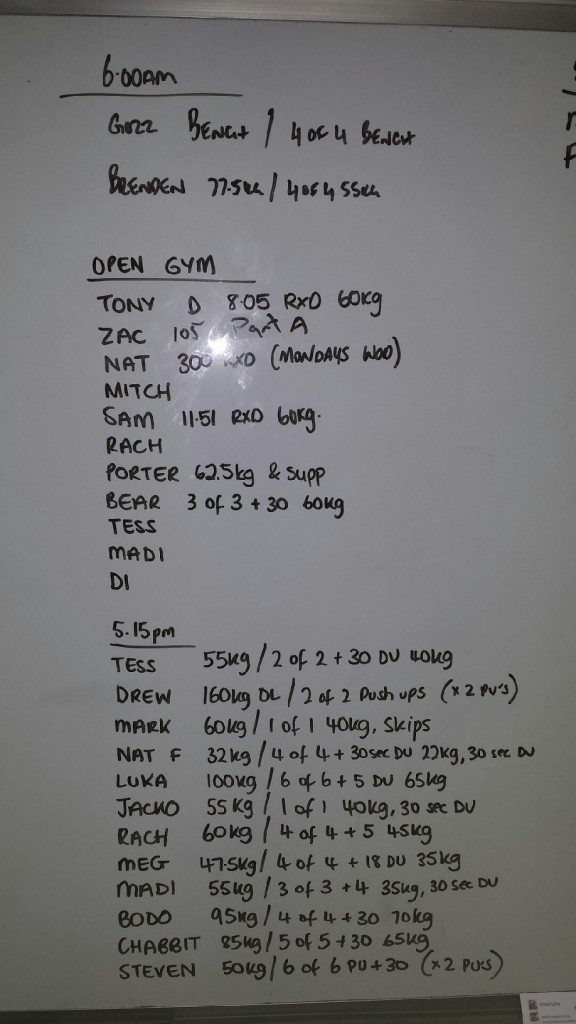 6.00AM
GOZZ BENCH / 4 OF 4 BENCH
BRENDEN 77.5KG / 4 OF 4 55KG
OPEN GYM
TONY D 8.05 RXD 60kg
ZAC 105 Part A
NAT 300 RXD (MONDAYS WOD)
MITCH
SAM 11.51 RXD 60kg.
RACH
PORTER 62.5kg & Supp
BEAR 3 of 3 + 30 60kg
TESS
MADI
DI
5.15pm
TESS 55kg / 2 of 2 + 30 DU 40kg
DREW 160kg DL / 2 of 2 Push ups (x 2 PU's)
MARK 60kg / 1 of 1 40kg, Skips
NAT F 32kg / 4 of 4 + 30sec DU 27kg, 30 sec DU
LUKA 100kg / 6 of 6 + 5 DU 65kg
JACKO 55kg / 1 of 1 40kg, 30 sec DU
RACH 60kg / 4 of 4 + 5 45kg
MEG 47.5kg / 4 of 4 + 18 DU 35kg
MADI 55kg / 3 of 3 + 4 35kg, 30 sec DU
BODO 95kg / 4 of 4 + 30 70kg
CHABBIT 85kg / 5 of 5 + 30 65kg
STEVEN 50kg / 6 of 6 PU + 30 (x 2 PU's)